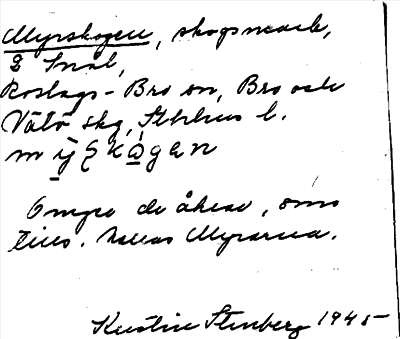 Myrskogen, skogsmark,
Snål,
Roslags-Bro sn, Bro och
Vätö skg, Sthlms l.
Omge de åkrar, som
kallas Myrarna.
Kerstin Stenberg 1945